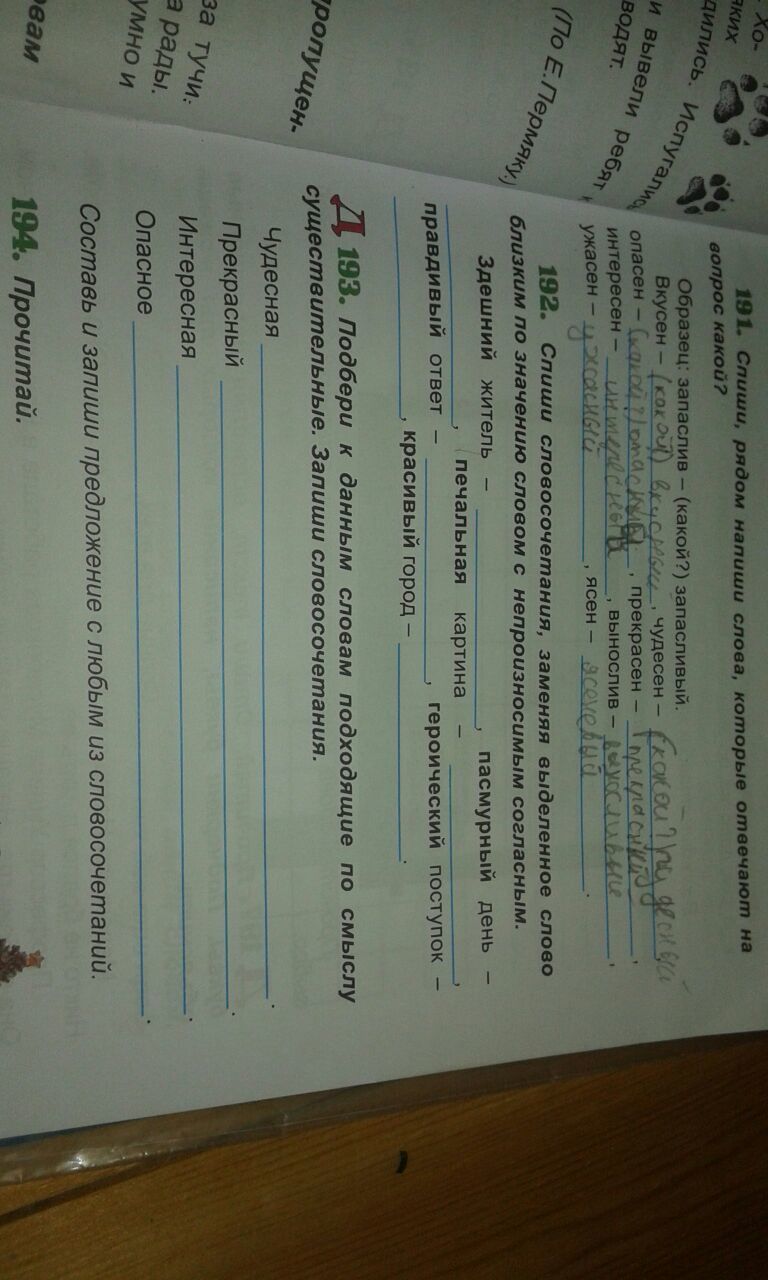 Хо-
яких
дились. Испугались
и вывели ребят
водят.
(По Е.Пермяку.)
ропущен.
за тучи.
а рады.
умно и
овам
191. Спиши, рядом напиши слова, которые отвечают на
вопрос какой?
Образец: запаслив – (какой?) запасливый.
Вкусен – (какой) вкусный, чудесен – (какой?) чудесный
опасен – (какой?) опасный, прекрасен – прекрасный,
интересен – интересный, вынослив – выносливые,
ужасен – ужасный, ясен – ясеневый.
192. Спиши словосочетания, заменяя выделенное слово
близким по значению словом с непроизносимым согласным.
Здешний житель – , пасмурный день –
, печальная картина – ,
правдивый ответ – , героический поступок –
, красивый город – .
Д 193. Подбери к данным словам подходящие по смыслу
существительные. Запиши словосочетания.
Чудесная .
Прекрасный .
Интересная .
Опасное .
Составь и запиши предложение с любым из словосочетаний.
194. Прочитай.